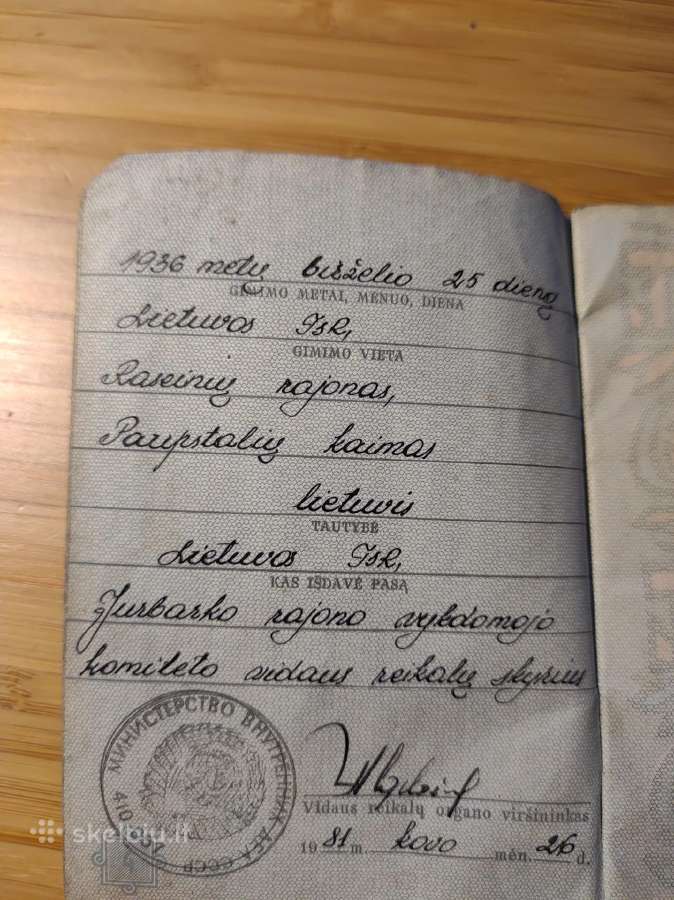 1936 metų birželio 25 dieną
GIMIMO METAI, MĖNUO, DIENA
Lietuvos TSR,
GIMIMO VIETA
Raseinių rajonas,
Paupstalių kaimas
lietuvis
TAUTYBĖ
Lietuvos TSR,
KAS IŠDAVĖ PASĄ
Jurbarko rajono vykdomojo
komiteto vidaus reikalų skyrius
МИНИСТЕРСТВО ВНУТРЕННИХ ДЕЛ СССР
014
Vidaus reikalų organo viršininkas
1981 m. kovo mėn. 26 d.
skelbiu.lt